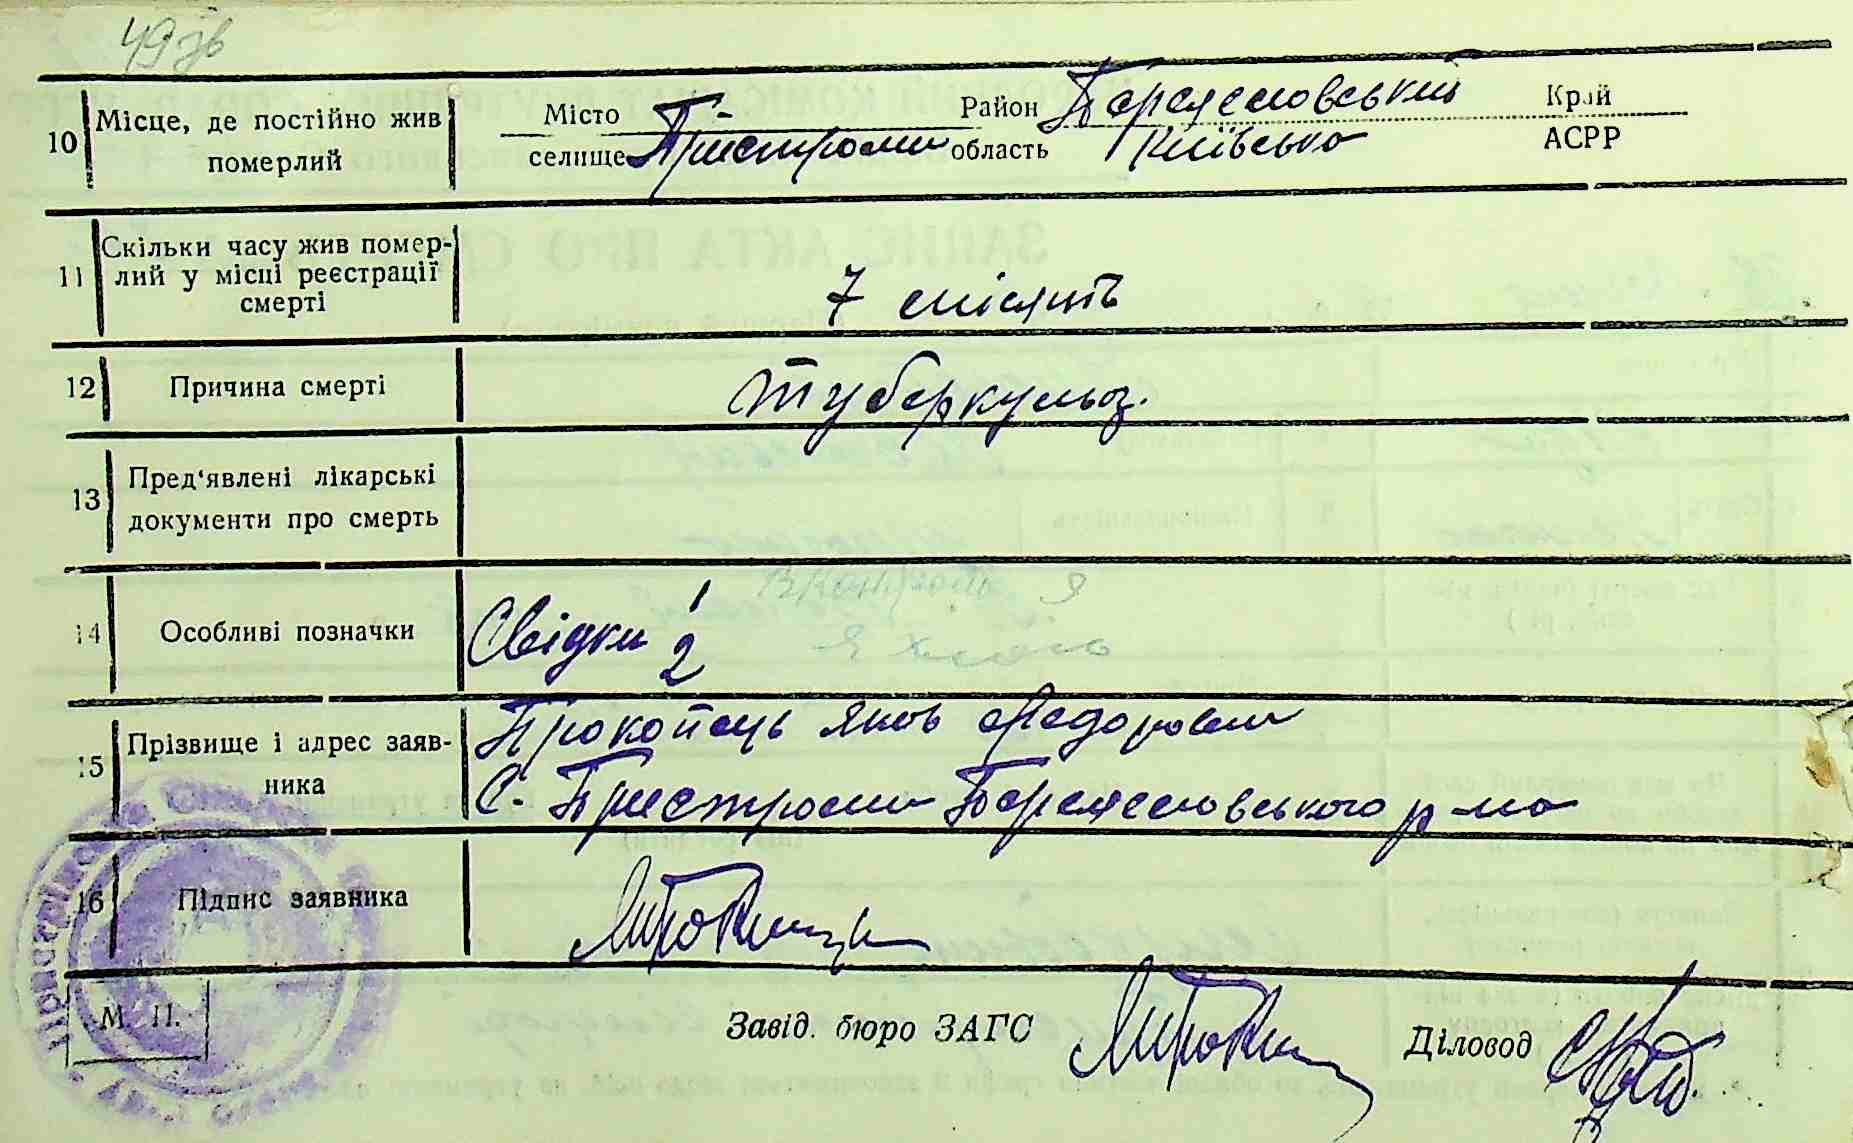 49 зв
10 Місце, де постійно жив померлий
Місто Район Переяславський Край
селище Пристроми область Київська АСРР
11 Скільки часу жив помер-
лий у місці реєстрації
смерті
7 місяців
12 Причина смерті Туберкульоз.
13 Пред'явлені лікарські
документи про смерть
14 Особливі позначки Свідки 1
2
15 Прізвище і адрес заяв-
ника
Прокопець Яков Федорович
С. Пристроми Переяславського р-на
16 Підпис заявника
М. П. Завід. бюро ЗАГС Діловод